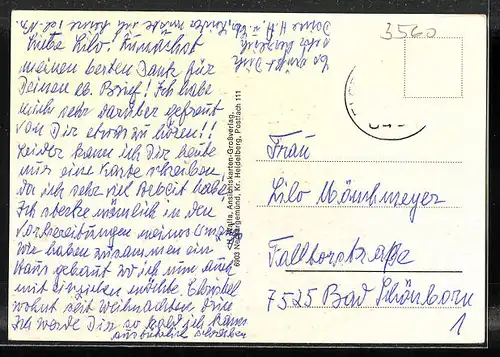 3560
Liebe Lilo. Zunächst
meinen besten Dank für
Deinen lb. Brief! Ich habe
mich sehr darüber gefreut
von Dir etwas zu hören!!
Leider kann ich Dir heute
nur eine Karte schreiben,
da ich sehr viel Arbeit habe.
Ich stecke nämlich in den
Vorbereitungen meines Umzugs
Wir haben zusammen ein
Haus gebaut wo ich nun auch
mit einziehen möchte
wohnt seit Weihnachten drin
Ich werde Dir so bald ich kann
ausführlich schreiben
Es grüßt Dich
recht herzlich
Deine H. A.
Ansichtskarten-Großverlag,
6903 Neckargemünd, Kr. Heidelberg, Postfach 111
Frau
Lilo Mönchmeyer
Falltorstraße
7525 Bad Schönborn
1